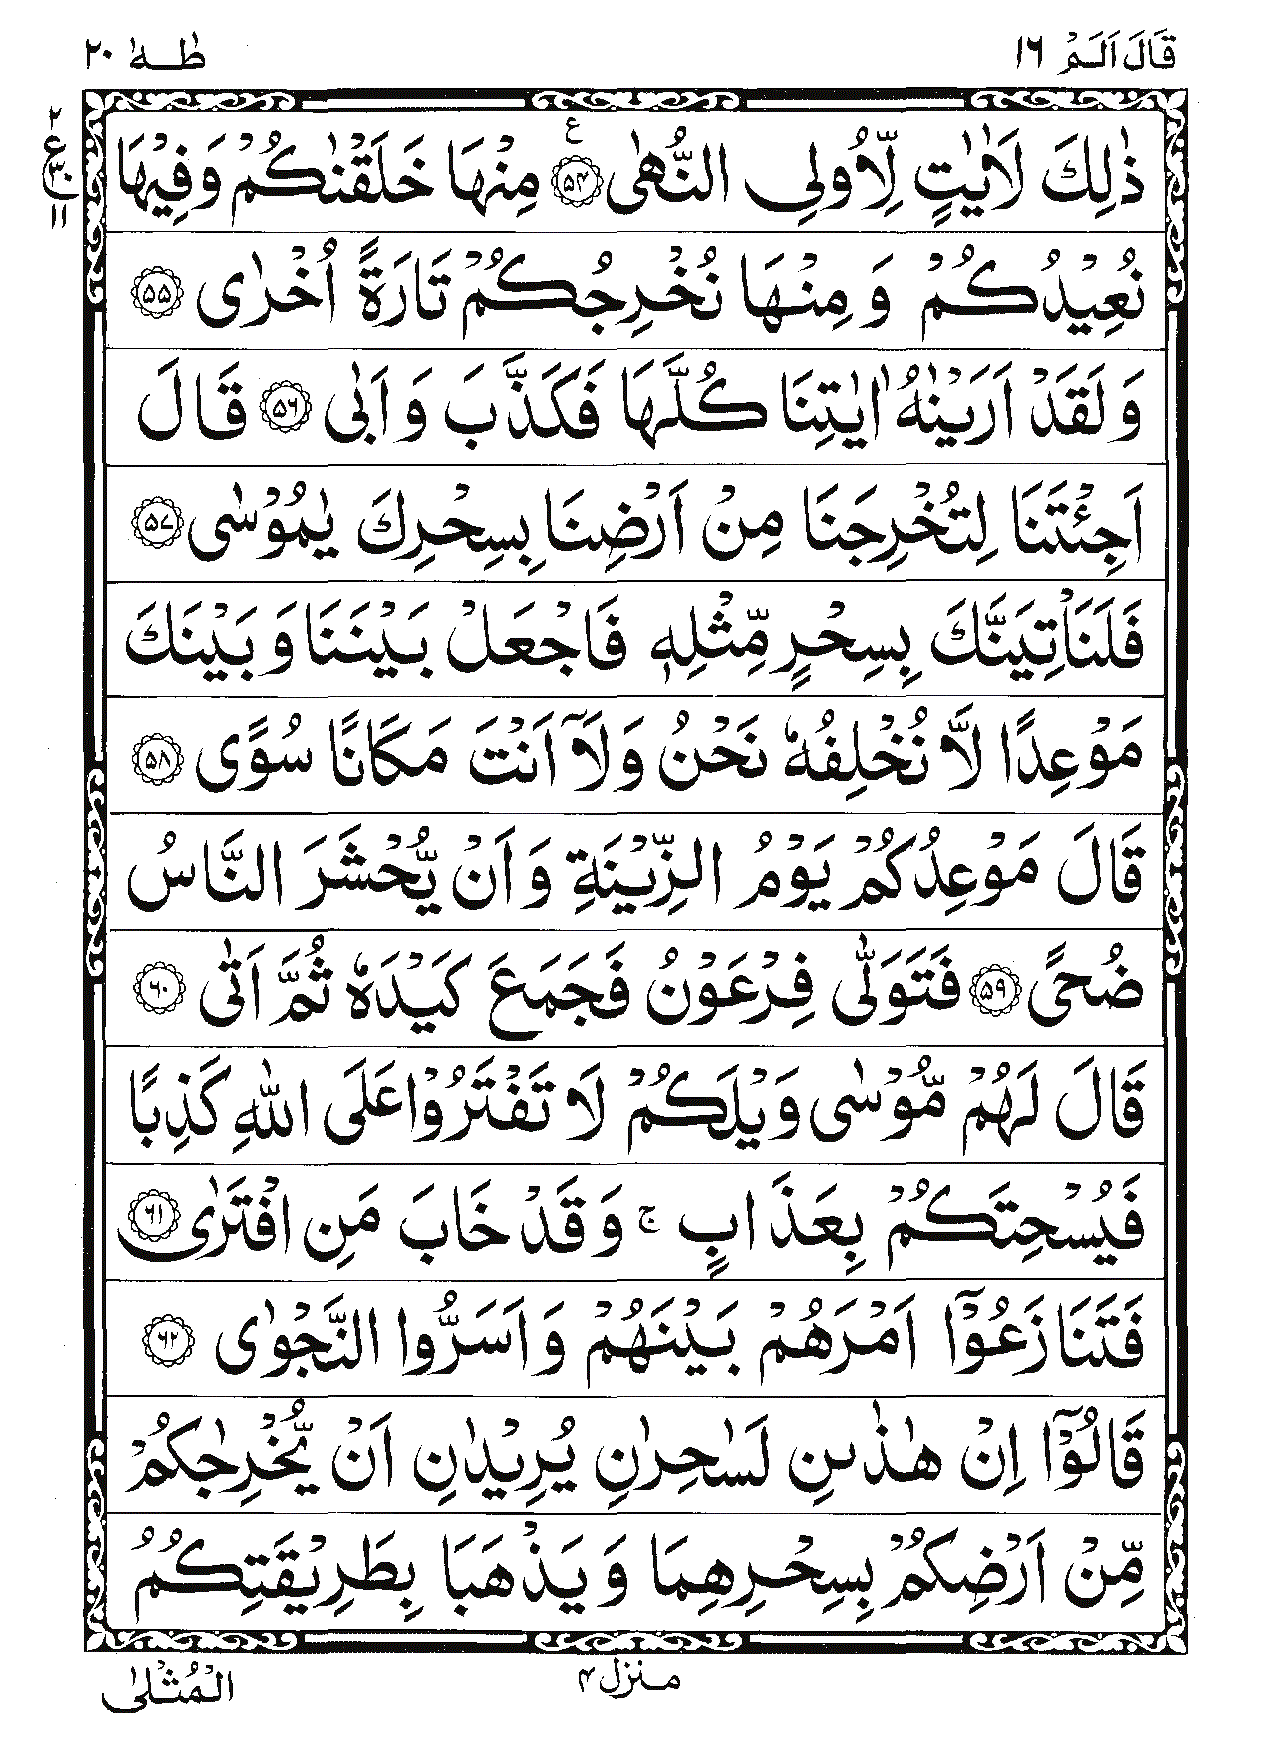 قَالَ اَلَمْ ١٦
طٰهٰ ٢٠
ذٰلِكَ لَاٰيٰتٍ لِّاُولِى النُّهٰى ﴿۵۴﴾ ع مِنْهَا خَلَقْنٰكُمْ وَفِيْهَا
٢ ع ٣٠ ١١
نُعِيْدُكُمْ وَ مِنْهَا نُخْرِجُكُمْ تَارَةً اُخْرٰى ﴿۵۵﴾
وَلَقَدْ اَرَيْنٰهُ اٰيٰتِنَا كُلَّهَا فَكَذَّبَ وَاَبٰى ﴿۵۶﴾ قَالَ
اَجِئْتَنَا لِتُخْرِجَنَا مِنْ اَرْضِنَا بِسِحْرِكَ يٰمُوْسٰى ﴿۵۷﴾
فَلَنَاْتِيَنَّكَ بِسِحْرٍ مِّثْلِهٖ فَاجْعَلْ بَيْنَنَا وَ بَيْنَكَ
مَوْعِدًا لَّا نُخْلِفُهٗ نَحْنُ وَلَاۤ اَنْتَ مَكَانًا سُوًى ﴿۵۸﴾
قَالَ مَوْعِدُكُمْ يَوْمُ الزِّيْنَةِ وَ اَنْ يُّحْشَرَ النَّاسُ
ضُحًى ﴿۵۹﴾ فَتَوَلّٰى فِرْعَوْنُ فَجَمَعَ كَيْدَهٗ ثُمَّ اَتٰى ﴿۶۰﴾
قَالَ لَهُمْ مُّوْسٰى وَيْلَكُمْ لَا تَفْتَرُوْا عَلَى اللّٰهِ كَذِبًا
فَيُسْحِتَكُمْ بِعَذَابٍ ۚ وَ قَدْ خَابَ مَنِ افْتَرٰى ﴿۶۱﴾
فَتَنَازَعُوْۤا اَمْرَهُمْ بَيْنَهُمْ وَ اَسَرُّوا النَّجْوٰى ﴿۶۲﴾
قَالُوْۤا اِنْ هٰذٰىنِ لَسٰحِرٰنِ يُرِيْدٰنِ اَنْ يُّخْرِجٰكُمْ
مِّنْ اَرْضِكُمْ بِسِحْرِهِمَا وَ يَذْهَبَا بِطَرِيْقَتِكُمُ
منزل ۴
الْمُثْلٰى